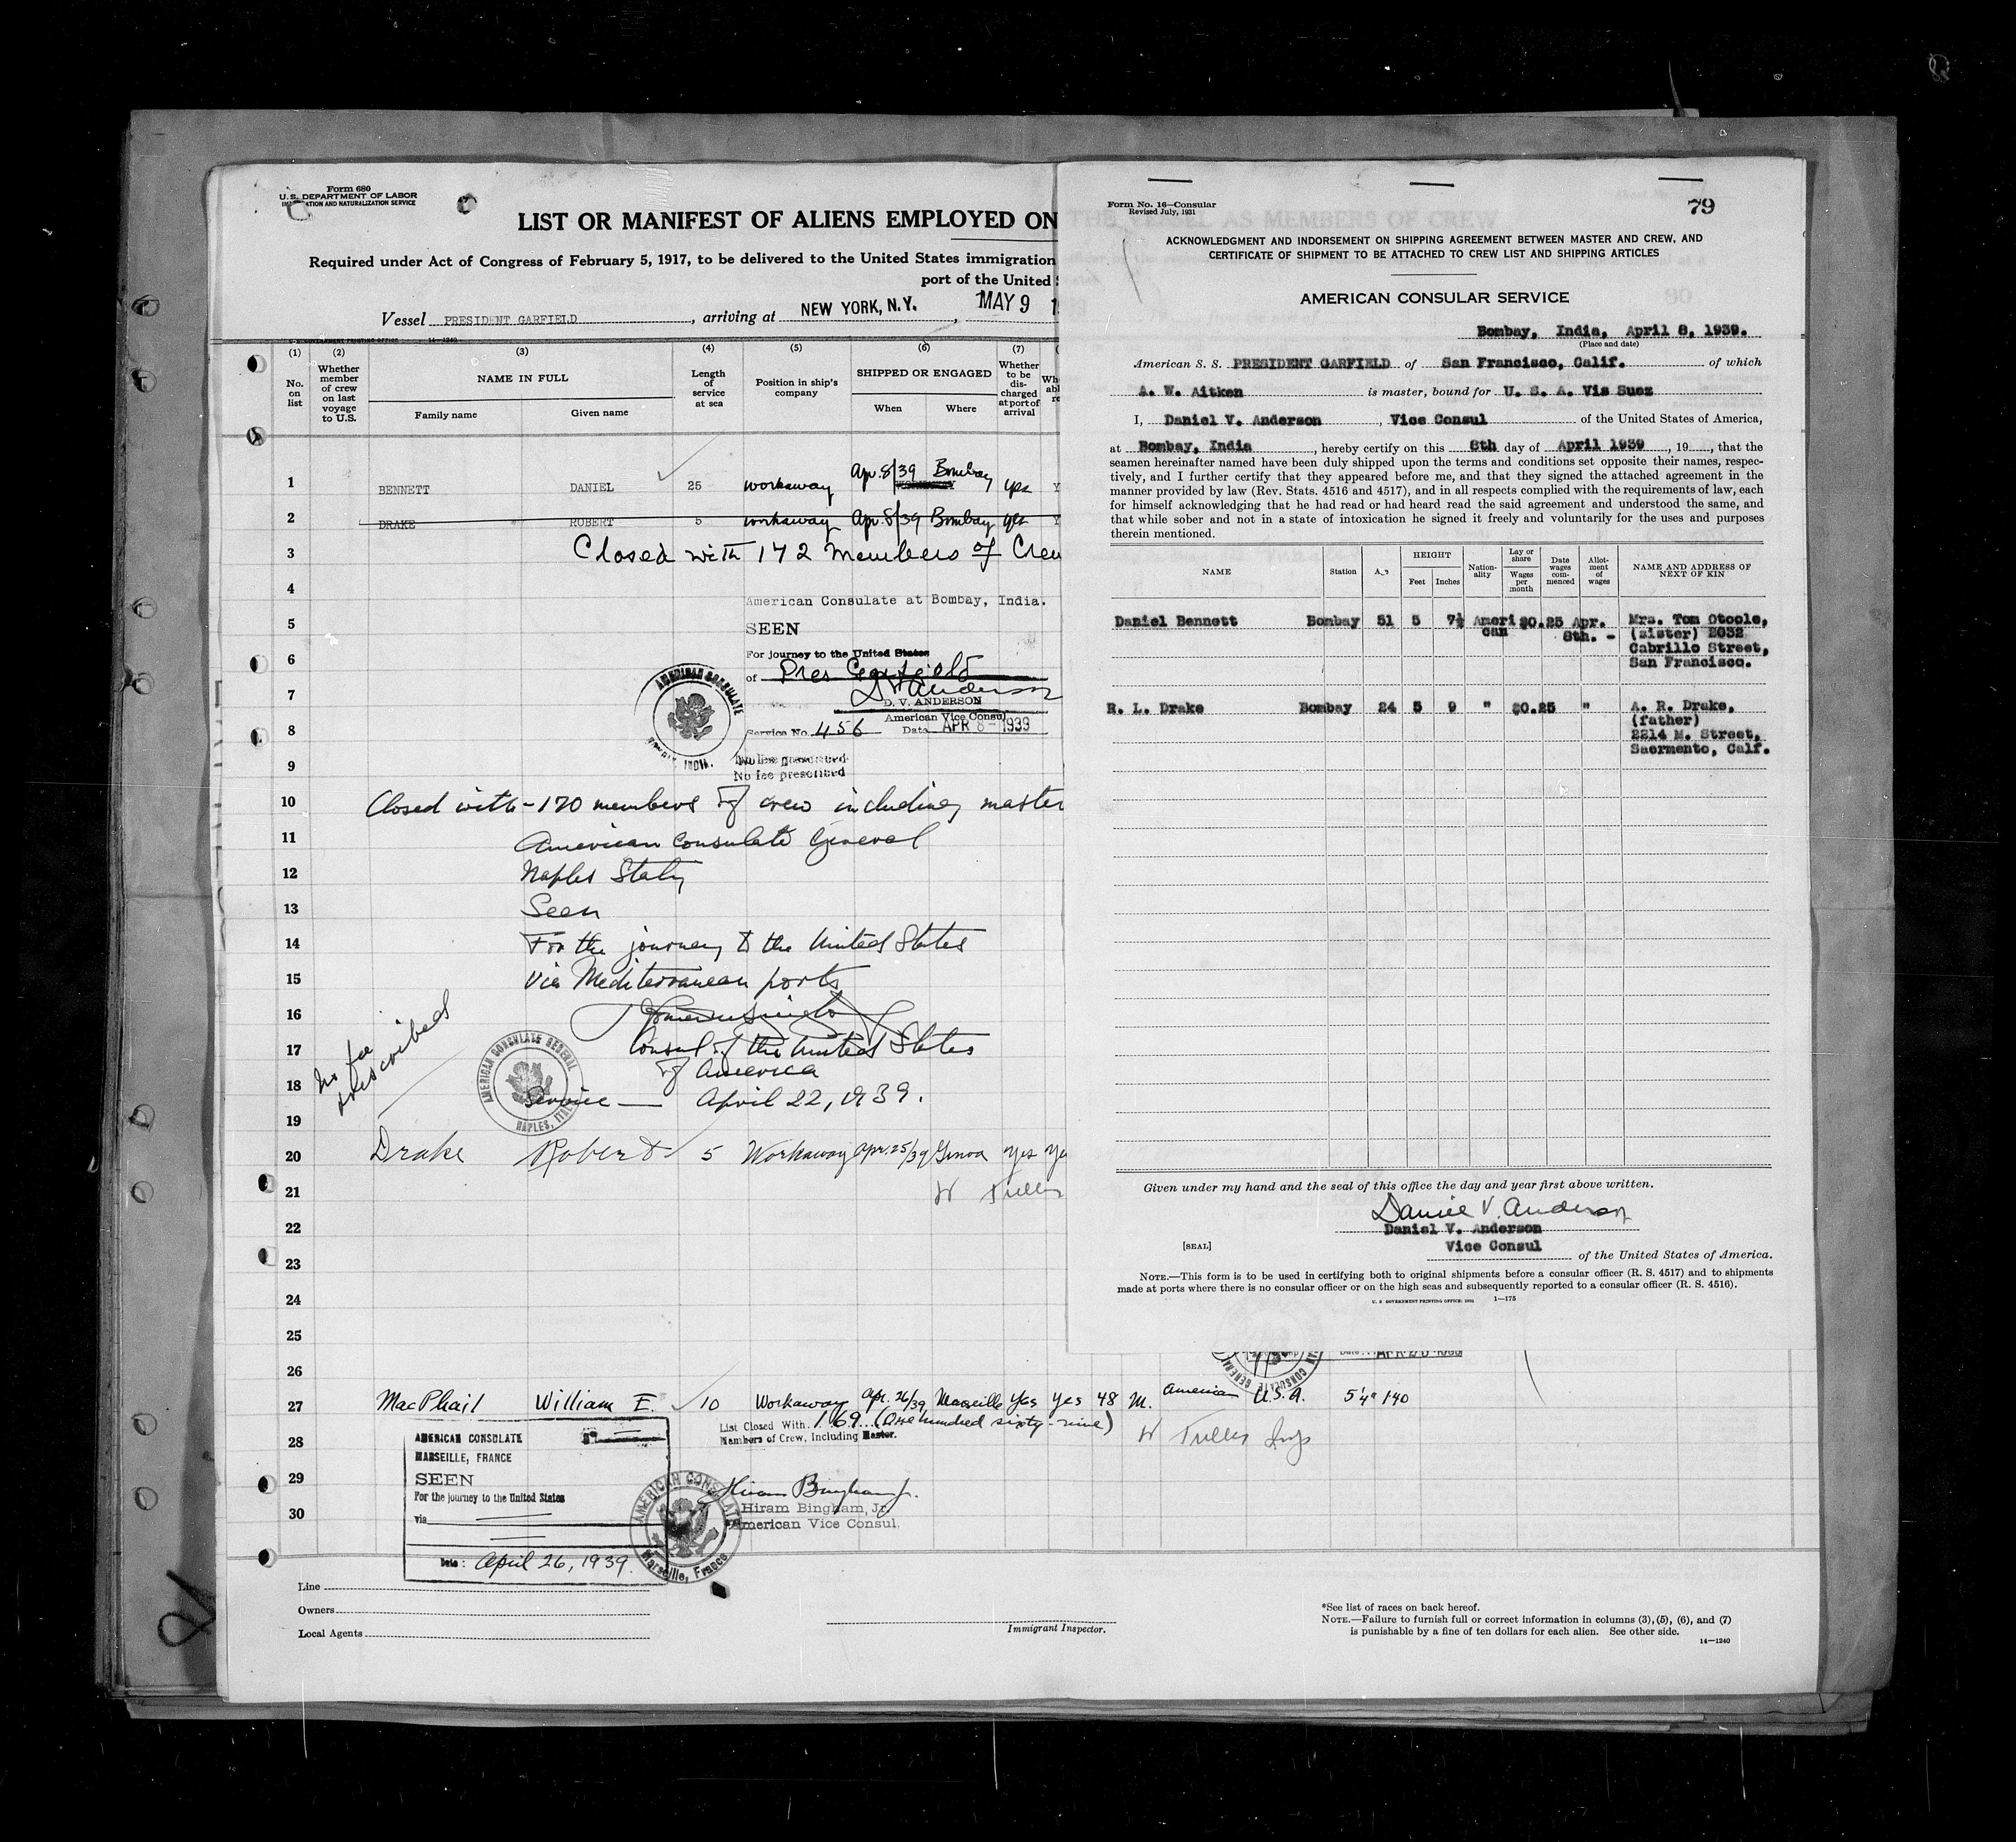 Form 680
U. S. DEPARTMENT OF LABOR
AND NATURALIZATION SERVICE
LIST OR MANIFEST OF ALIENS EMPLOYED ON
Required under Act of Congress of February 5, 1917, to be delivered to the United States immigration
port of the United
Vessel PRESIDENT GARFIELD , arriving at NEW YORK, N.Y. , MAY 9
14-1240
(1) (2) (3) (4) (5) (6) (7)
No. on list
Whether member of crew on last voyage to U.S.
NAME IN FULL
Family name Given name
Length of service at sea
Position in ship's company
SHIPPED OR ENGAGED
When Where
Whether to be discharged at port of arrival
1 BENNETT DANIEL 25 workaway Apr. 8/39 Bombay yes Y
2 DRAKE ROBERT 5 workaway Apr. 8/39 Bombay yes Y
3 Closed with 172 Members of Crew
4 American Consulate at Bombay, India.
5 SEEN
6 For journey to the United States
of Pres Garfield
7 D V Anderson
D. V. ANDERSON
American Vice Consul
8 Service No. 456 Date APR 8-1939
AMERICAN CONSULATE
INDIA.
9 No fee prescribed
No fee prescribed
10 Closed with - 170 members of crew including master
11 American Consulate General
12 Naples Italy
13 Seen
14 For the journey to the United States
15 via Mediterranean ports
16
17 Consul of the United States
of America
18 Service — April 22, 1939.
No fee prescribed
AMERICAN CONSULATE GENERAL
NAPLES, ITALY
19
20 Drake Robert 5 Workaway Apr. 25/39 Genoa yes ye
21 W Tuller
22
23
24
25
26
27 MacPhail William E. 10 Workaway Apr. 26/39 Marseille yes yes 48 M. American U.S.A. 5'4" 140
List Closed With 169 (One hundred sixty-nine)
Members of Crew, Including Master.
28 W Tuller Insp
AMERICAN CONSULATE
MARSEILLE, FRANCE
SEEN
For the journey to the United States
via
Date: April 26, 1939.
29 Hiram Bingham Jr.
Hiram Bingham, Jr
30 American Vice Consul.
AMERICAN CONSULATE
Marseille, France
Line
Owners
Local Agents
Immigrant Inspector.
*See list of races on back hereof.
NOTE.—Failure to furnish full or correct information in columns (3), (5), (6), and (7)
is punishable by a fine of ten dollars for each alien. See other side.
14—1240
Form No. 16—Consular
Revised July, 1931
79
ACKNOWLEDGMENT AND INDORSEMENT ON SHIPPING AGREEMENT BETWEEN MASTER AND CREW, AND
CERTIFICATE OF SHIPMENT TO BE ATTACHED TO CREW LIST AND SHIPPING ARTICLES
AMERICAN CONSULAR SERVICE
Bombay, India, April 8, 1939.
(Place and date)
American S. S. PRESIDENT GARFIELD of San Francisco, Calif. of which
A. W. Aitken is master, bound for U. S. A. Via Suez
I, Daniel V. Anderson , Vice Consul of the United States of America,
at Bombay, India , hereby certify on this 8th day of April 1939 , 19 , that the
seamen hereinafter named have been duly shipped upon the terms and conditions set opposite their names, respec-
tively, and I further certify that they appeared before me, and that they signed the attached agreement in the
manner provided by law (Rev. Stats. 4516 and 4517), and in all respects complied with the requirements of law, each
for himself acknowledging that he had read or had heard read the said agreement and understood the same, and
that while sober and not in a state of intoxication he signed it freely and voluntarily for the uses and purposes
therein mentioned.
NAME Station HEIGHT Feet Inches Nation-ality Lay or share Wages per month Date wages com-menced Allot-ment of wages NAME AND ADDRESS OF NEXT OF KIN
Daniel Bennett Bombay 51 5 7½ Ameri $0.25 Apr. Mrs. Tom Otoole,
can 8th. - (sister) 2032
Cabrillo Street,
San Francisco.
R. L. Drake Bombay 24 5 9 " $0.25 " A. R. Drake,
(father)
2214 M. Street,
Sacrmento, Calf.
Given under my hand and the seal of this office the day and year first above written.
Daniel V. Anderson
Daniel V. Anderson
[SEAL] Vice Consul of the United States of America.
NOTE.—This form is to be used in certifying both to original shipments before a consular officer (R. S. 4517) and to shipments
made at ports where there is no consular officer or on the high seas and subsequently reported to a consular officer (R. S. 4516).
U. S. GOVERNMENT PRINTING OFFICE: 1931 1—175